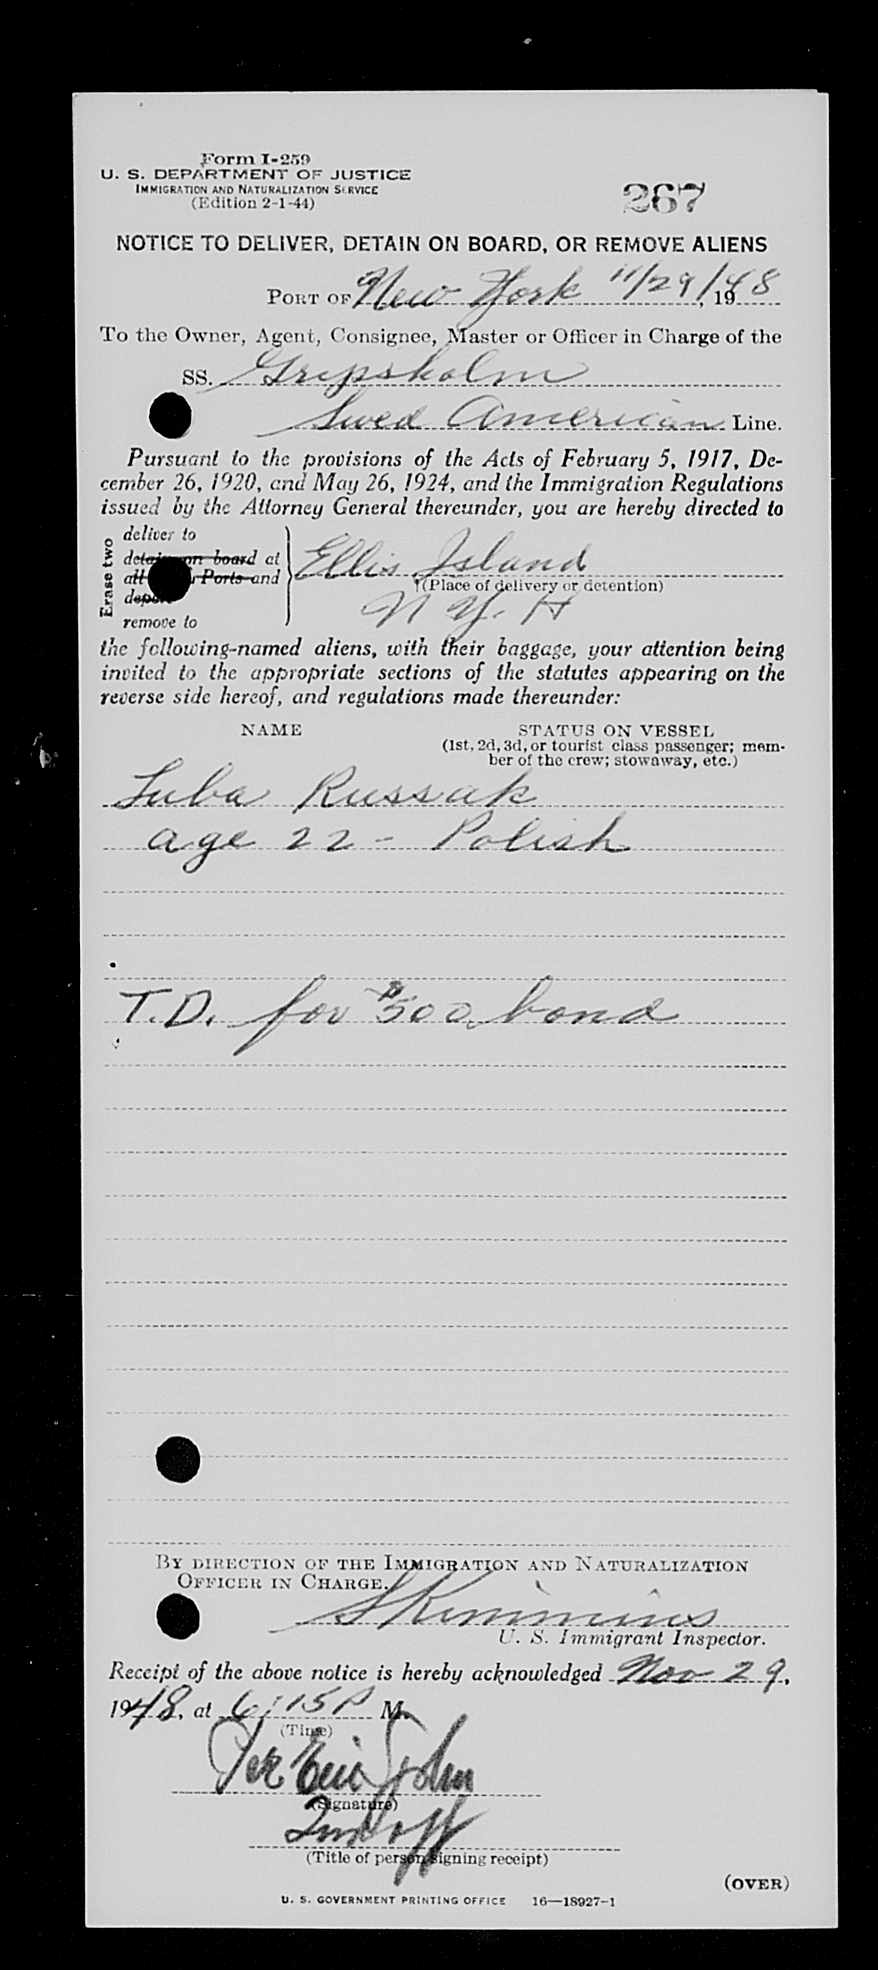 Form I-259
U. S. DEPARTMENT OF JUSTICE
IMMIGRATION AND NATURALIZATION SERVICE
(Edition 2-1-44)
267
NOTICE TO DELIVER, DETAIN ON BOARD, OR REMOVE ALIENS
PORT OF New York 11/29/48, 19
To the Owner, Agent, Consignee, Master or Officer in Charge of the
SS. Gripsholm
Swed American Line.
Pursuant to the provisions of the Acts of February 5, 1917, De-
cember 26, 1920, and May 26, 1924, and the Immigration Regulations
issued by the Attorney General thereunder, you are hereby directed to
Erase two
deliver to
detain on board at
all Ports and
depor
remove to
Ellis Island
(Place of delivery or detention)
N Y. H
the following-named aliens, with their baggage, your attention being
invited to the appropriate sections of the statutes appearing on the
reverse side hereof, and regulations made thereunder:
NAME
STATUS ON VESSEL
(1st, 2d, 3d, or tourist class passenger; mem-
ber of the crew; stowaway, etc.)
Luba Russak
age 22 - Polish
T.D. for $500 bond
BY DIRECTION OF THE IMMIGRATION AND NATURALIZATION
OFFICER IN CHARGE.
SKimmins
U. S. Immigrant Inspector.
Receipt of the above notice is hereby acknowledged Nov 29,
1948, at 6:15 P M.
(Time)
Per Eric
(Signature)
(Title of person signing receipt)
(OVER)
U. S. GOVERNMENT PRINTING OFFICE 16—18927-1